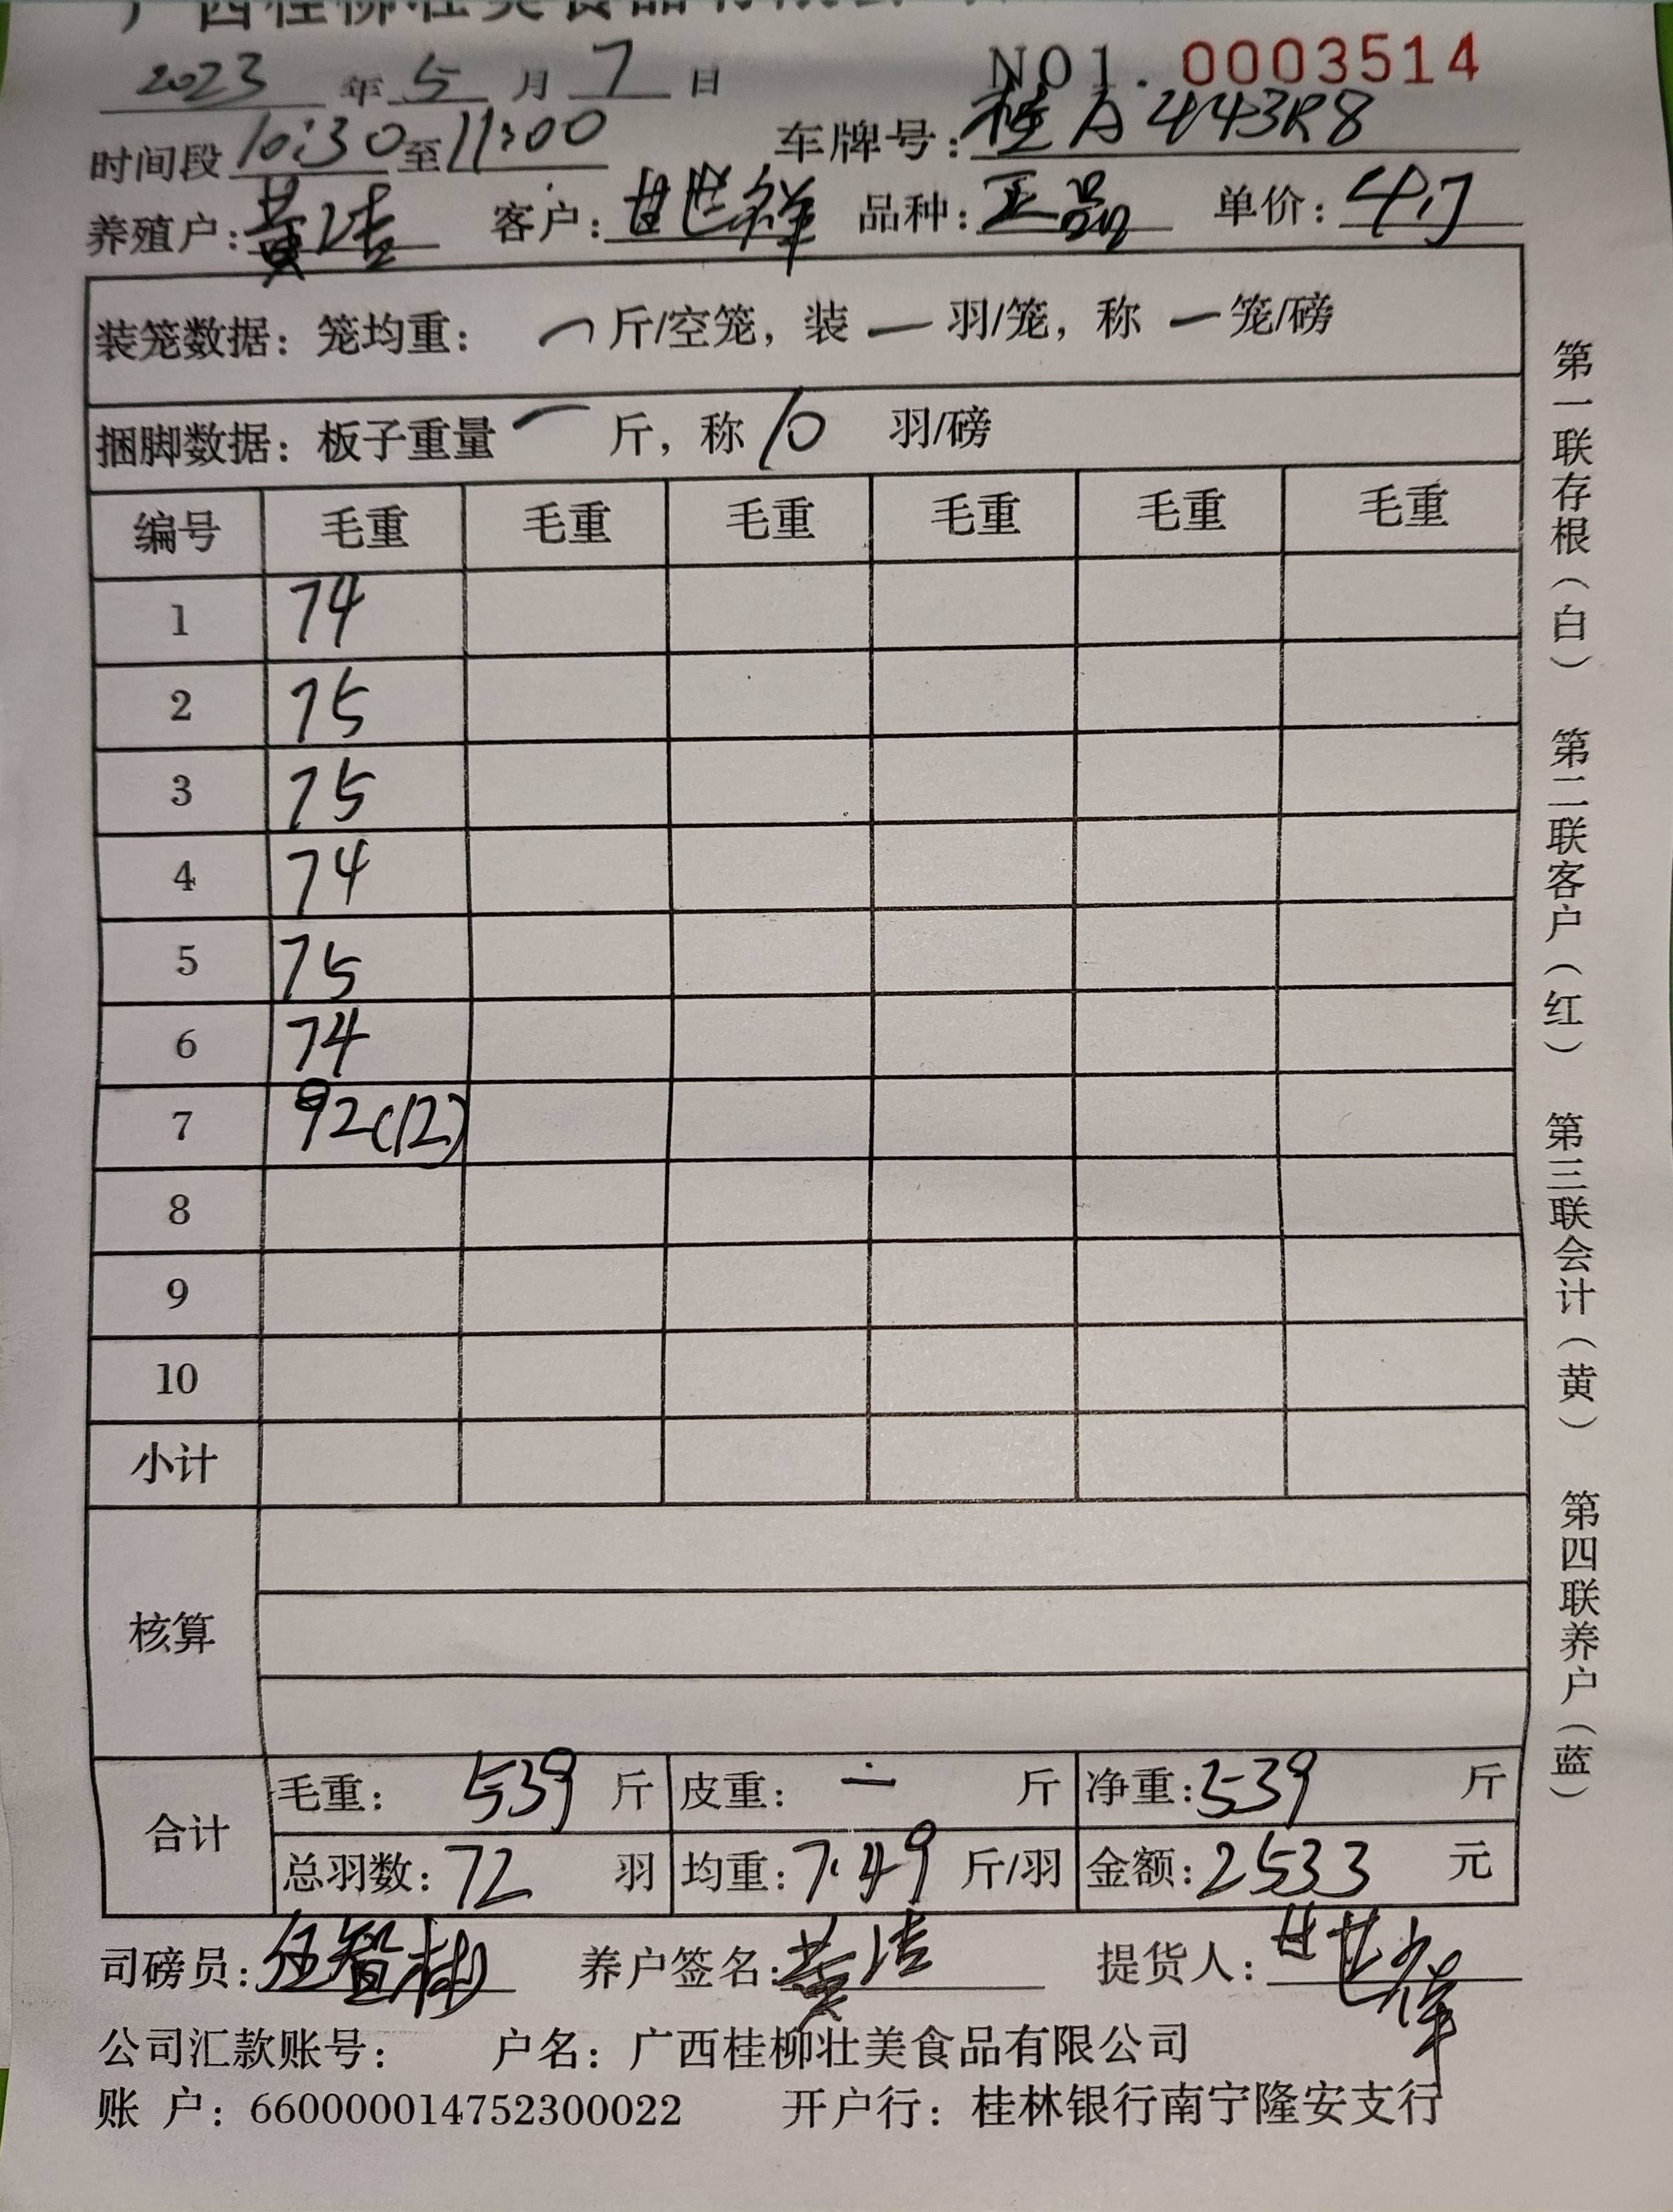 广西桂柳壮美食品有限公司
2023 年 5 月 7 日 NO1. 0003514
时间段 10:30 至 11:00 车牌号: 桂A443R8
养殖户: 黄洁 客户: 甘世祥 品种: 正品 单价: 4.7
装笼数据: 笼均重: 一 斤/空笼, 装 一 羽/笼, 称 一 笼/磅
捆脚数据: 板子重量 一 斤, 称 10 羽/磅
编号 毛重 毛重 毛重 毛重 毛重 毛重
1 74
2 75
3 75
4 74
5 75
6 74
7 92(12)
8
9
10
小计
核算
合计
毛重: 539 斤 皮重: 一 斤 净重: 539 斤
总羽数: 72 羽 均重: 7.49 斤/羽 金额: 2533 元
司磅员: 伍智彬 养户签名: 黄洁 提货人: 甘世祥
公司汇款账号: 户名: 广西桂柳壮美食品有限公司
账 户: 660000014752300022 开户行: 桂林银行南宁隆安支行
第一联存根（白） 第二联客户（红） 第三联会计（黄） 第四联养户（蓝）